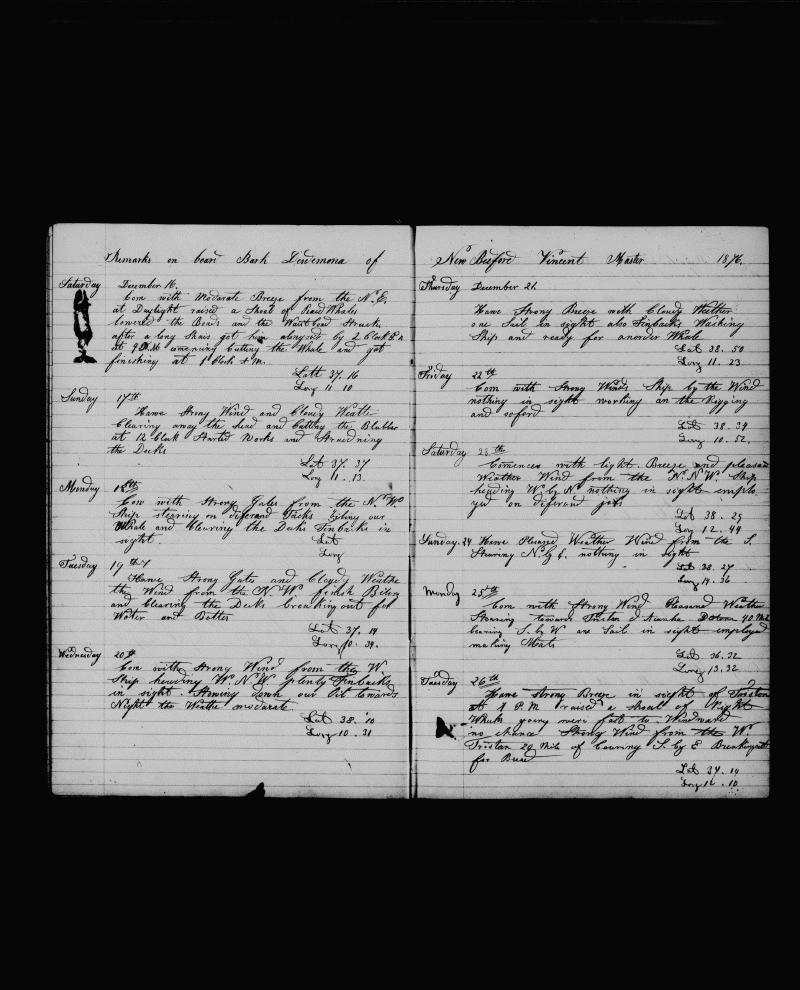 Remarks on board Bark Desdemona of
Saturday December 16.
Com with Moderate Breeze from the N.E.
at Daylight raised a Shoal of Whales
lowered the Boats and the Waist boat Struck,
after a long got him alongside by 2 Clock P.M
At 9 Comencing Cutting the Whale and got
finishing at 1 Clock P.M.
Latt 37. 16
Long 11 10
Sunday 17th
Have Strong Wind and Cloudy Weather
Clearing away the head and Cutting the Blubber
at 12 Clock Started Works and
the Decks
Lat 37. 37
Long 11. 13.
Monday 18th
Com with Strong Gales from the N.W.
Ship steering on diferand Tacks Biling our
Whale and Clearing the Decks Finbacks in
sight.
Lat
Long
Tuesday 19th
Have Strong Gales and Cloudy Weathe
the Wind from the N.W. finish Bilen
and Clearing the Decks breaking out for
Water and
Lat 37. 19
Long 10. 39.
Wednesday 20th
Com with Strong Wind from the W
Ship heading W.N.W. plenty Finbacks
in sight. Stowing down our Oil towards
Night the Weathe moderate
Lat 38. 10
Long 10. 31
New Beford Vincent Master 1876.
Thursday December 21.
Have Strong Breeze with Cloudy Wether
one Sail in sight also Finbacks Washing
Ship and ready for anorder Whale
Lat 38. 50
Long 11. 23
Friday 22th
Com with Strong Winds Ship by the Wind
nothing in sight working on the Rigging
and soford
Lat 38. 39
Long 10. 52.
Saturday 23th
Comences with light Breeze and pleasan
Weather Wind from the N.N.W. Ship
heading W. by N. nothing in sight emplo
yed on diferand jobs
Lat 38. 29
Long 12. 44
Sunday. 24 Have Pleasand Weather Wind from the S.
Stearing nothing in sight
Lat 38. 27
Long 14. 36
Monday 25th
Com with Strong Wind Pleasand Weather
Stearing towards Tristan 40 Mile
bearing S. by W one Sail in sight employed
making Mats
Lat 36. 32
Long 13. 32
Tuesday 26th
Have strong Breeze in sight of Tristan
at 4 P.M. raised a shoal of Right
Whals going very fast to Windward
no chance Strong Wind from the W.
Tristan 20 Mile of bearing S. by E Breakingout
for Bread
Lat 37. 14
Long 12. 10